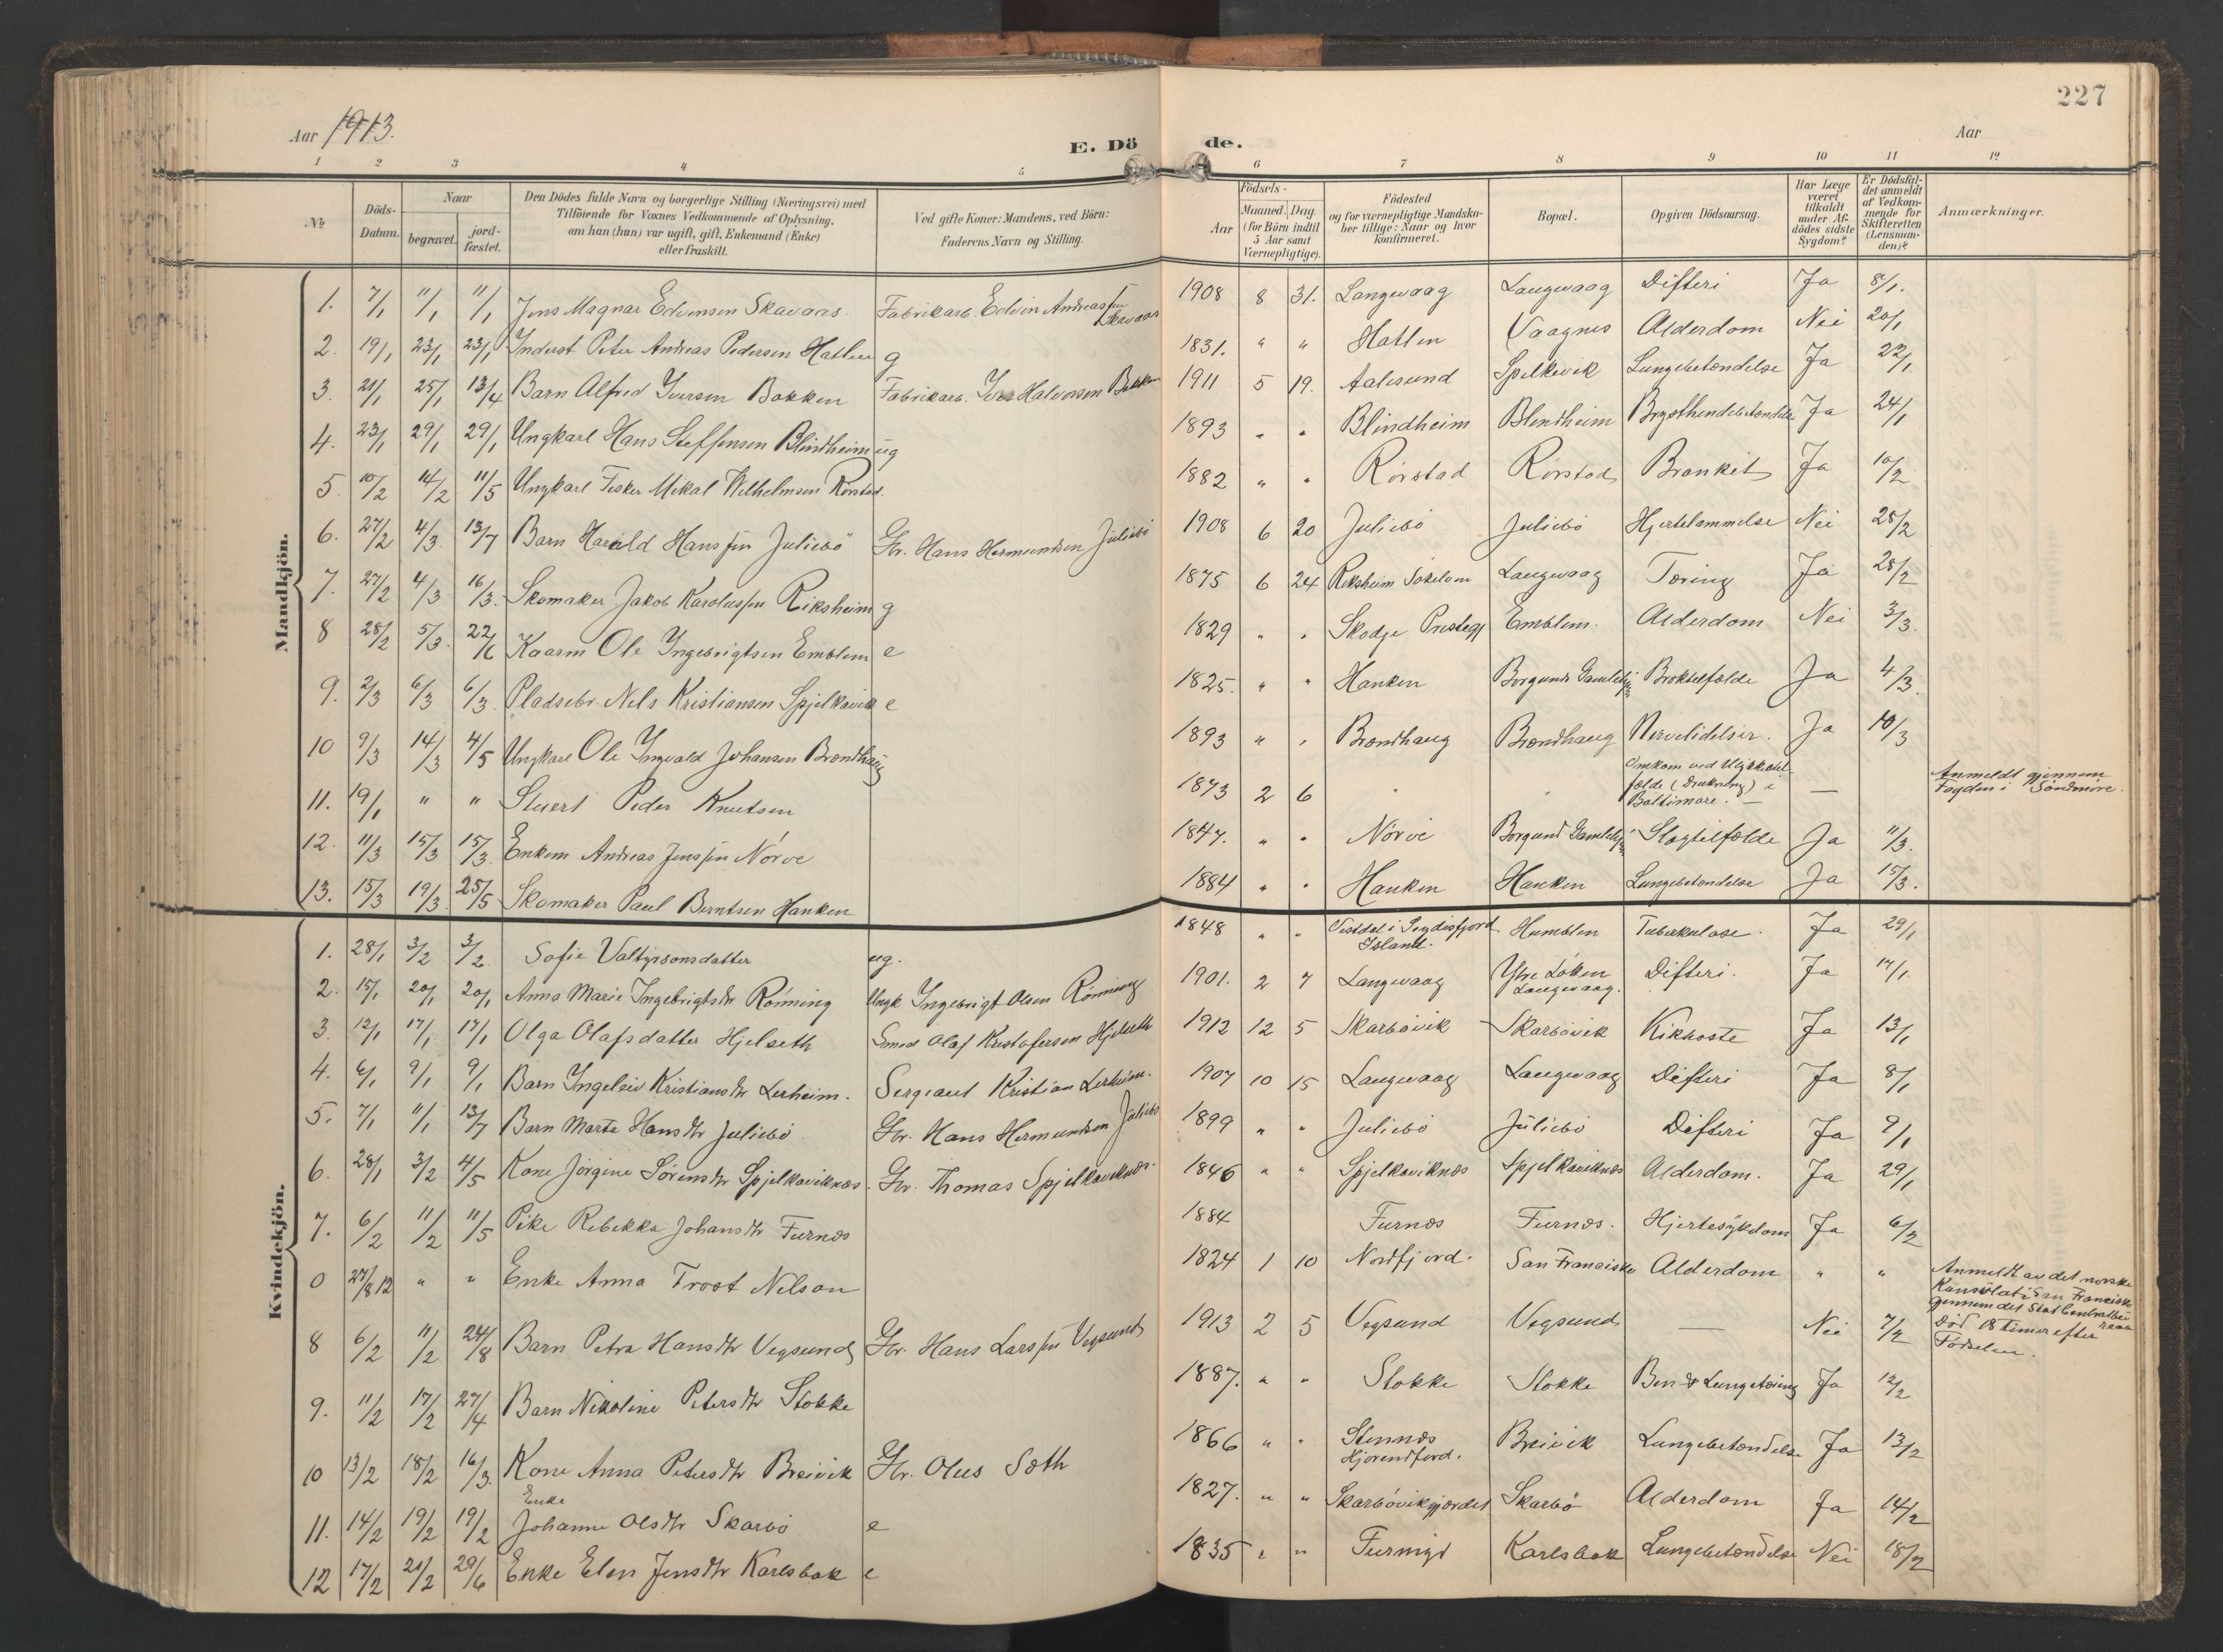 227
Aar 1913.
E. Döde.
Aar
1 2 3 4 5 6 7 8 9 10 11 12
№
Döds-Datum.
Naar
begravet.
jord-fæstet.
Den Dödes fulde Navn og borgerlige Stilling (Næringsvei) med
Tilföiende for Voxnes Vedkommende af Oplysning,
om han (hun) var ugift, gift, Enkemand (Enke)
eller fraskilt.
Ved gifte Koner: Mandens, ved Börn:
Faderens Navn og Stilling.
Födsels-
Aar
Maaned. Dag.
(for Börn indtil
5 Aar samt
Værnepligtige).
Födested
og for værnepligtige Mandska-
ber tillige: Naar og hvor
konfirmeret.
Bopæl.
Opgiven Dödsaarsag.
Har Læge
været
tilkaldt
under Af-
dödes sidste
Sygdom?
Er Dödsfal-
det anmeldt
af Vedkom-
mende for
Skifteretten
(Lensman-
den)?
Anmærkninger.
Mandkjön.
1. 7/1 11/1 11/1 Jens Magnar Edvinsen Skavaas. Fabrikarb. Edvin Andreassen Skavaas 1908 8 31. Langevaag Langevaag Difteri Ja 8/1.
2. 19/1 23/1 23/1 Inderst Peter Andreas Pedersen Hatlen g 1831. " " Hatlen Vaagnes Alderdom Nei 20/1
3. 21/1 25/1 13/4 Barn Alfred Iversen Bakken Fabrikarb. Iver Halvorsen Bakken 1911 5 19. Aalesund Spelkevik Lungebetændelse Ja 22/1
4. 23/1 29/1 29/1 Ungkarl Hans Steffensen Blindheim ug 1893 " " Blindheim Blindheim Brysthendebetændelse Ja 24/1
5. 10/2 14/2 11/5 Ungkarl Fisker Mikal Wilhelmsen Rørstad. 1882 " " Rörstad Rörstad Bronkit Ja 10/2
6. 27/2 4/3 13/7 Barn Harald Hanssen Juliebö Gbr. Hans Hermundsen Juliebö 1908 6 20 Juliebö Juliebö Hjertelammelse Nei 28/2
7. 27/2 4/3 16/3. Skomaker Jakob Karolussen Riksheim g 1875 6 24 Riksheim Sökelven Langevaag Tæring Ja 28/2
8 28/2 5/3. 22/6 Kaarm Ole Ingebrigtsen Emblem e 1829 " " Skodje Prestegj Emblem. Alderdom Nei 3/3.
9. 2/3 6/3 6/3. Pladsebr Nels Kristiansen Spjelkavik e 1825. " " Hanken Borgund Gamlehjem Broktilfælde Ja 4/3.
10 9/3 14/3 4/5 Ungkarl Ole Ingvald Johansen Brændhaug 1893 " " Brændhaug Brændhaug Nervelidelser. Ja 10/3
11. 19/1 " " Stuert Peder Knutsen 1873 2 6 " " Omkom ved Ulykkestilfælde (Drukning) i Baltimore. — — Anmeldt gjennem Fogden i Söndmöre.
12. 11/3 15/3 15/3. Enkem Andreas Jenssen Nörve 1847. " " Nörve Borgund Gamlehjem Slagtilfælde Ja 11/3.
13. 15/3 19/3. 25/5 Skomaker Paul Berntsen Hanken 1884 " " Hanken Hanken Lungebetændelse Ja 15/3.
Kvindekjön.
1. 28/1 3/2 3/2. Sofie Valtyrsonsdatter ug. 1848 " " Vestdal i Seydisfjord Island. Humblen Tuberkulose. Ja 29/1
2. 15/1 20/1 20/1 Anna Marie Ingebrigtsdtr Rönning Ungk Ingebrigt Olsen Rönning 1901. 2 7 Langevaag Ytre Löken Langevaag. Difteri. Ja 17/1.
3. 12/1 17/1 17/1 Olga Olafsdatter Hjelseth Smed Olaf Kristofersen Hjelseth 1912 12 5 Skarbövik Skarbövik Kikhoste Ja 13/1
4. 6/1 9/1 9/1 Barn Ingeleiv Kristiansdtr Lerheim. Sergeant Kristian Lerheim. 1907 10 15 Langevaag Langevaag Difteri Ja 8/1
5. 7/1 11/1 13/7 Barn Marta Hansdtr Juliebö Gbr. Hans Hermundsen Juliebö 1899 " " Juliebö Juliebö Difteri Ja 9/1
6. 28/1 3/2 4/5 Kone Jörgine Sörensdtr Spjelkaviknæs. Gbr. Thomas Spjelkaviknæs. 1846 " " Spjelkaviknæs Spjelkaviknæs Alderdom. Ja 29/1
7. 6/2 11/2 11/5 Pike Rebekka Johansdtr Furnæs 1884 Furnæs Furnæs. Hjertesykdom Ja 6/2
0 27/8 12 " " Enke Anna Troot Nelson 1824 1 10 Nordfjord. San Francisko Alderdom " " Anmeldt av det norske Konsulat i San Francisko gjennem det Stat. Centralbüraa
8 6/2 11/2 24/8 Barn Petra Hansdtr Vegsund Gbr. Hans Larssen Vegsund 1913 2 5 Vegsund Vegsund — Nei 7/2 Död 18 timer efter Födselen.
9. 11/2 17/2 27/4 Barn Nikoline Petersdtr Stokke 1887. " " Stokke Stokke Ben & Lungetæring Ja 12/2
10 13/2 18/2 16/3. Kone Anna Petersdtr Breivik Gbr. Olus Sæth 1866 " " Stennæs Hjörendfjord. Breivik Lungebetændelse Ja 13/2
11. 14/2 19/2 19/2 Enke Johanne Olsdtr Skarbö e 1827. " " Skarbövikgjærdet Skarbö Alderdom Ja 14/2
12 17/2 21/2 29/6 Enke Elen Jensdtr Karlsbak e 1835 " " Furmyr Karlsbak Lungebetændelse Nei 18/2